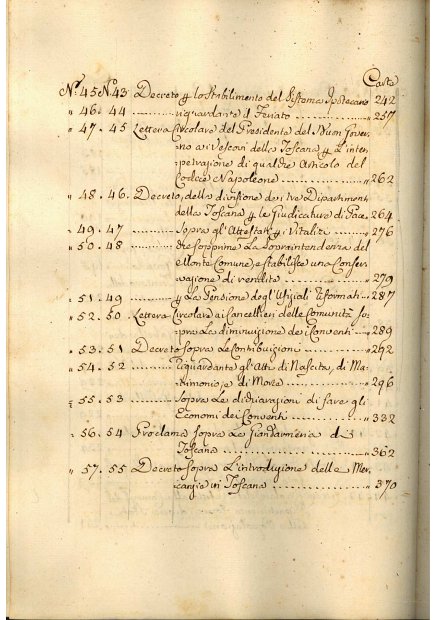 Carte
Nº. 45 Nº. 43 Decreto p lo Stabilimento del Sistema Ipotecario 242
" 46. 44 ——— riguardante il Feriato ............ " 257
" 47. 45 Lettera Circolare del Presidente del Buon Gover-
no ai Vescovi della Toscana p L'inter-
petrazione di qualche Articolo del
Codice Napoleone .................. " 262
" 48. 46. Decreto, della divisione dei tre Dipartimenti
della Toscana p le Giudicature di Pace, 264
" 49. 47 ——— Sopra gl'Attestati i Vitalizi ...... " 276
" 50. 48 ——— che sopprime La Sopraintendenza del
Monte Comune, e stabilisce una Conser-
vazione di rendite ............... " 279
" 51. 49 ——— p La Pensione degl'Ufiziali Riformati .. " 287
" 52. 50. Lettera Circolare ai Cancellieri delle Comunità so-
pra La diminuzione dei Conventi ... " 289
" 53. 51 Decreto sopra Le Contribuzioni ......... " 292
" 54. 52 ——— Riguardante gl'Atti di Nascita, di Ma-
trimonio, e di Morte .............. " 296
" 55. 53 ——— sopra Le dichiarazioni di fare gli
Economi dei Conventi ............. " 332
" 56. 54 Proclama sopra Le Giandarmeria di
Toscana ........................ " 362
" 57. 55 Decreto sopra L'introduzione delle Mer-
canzie in Toscana ................ " 370